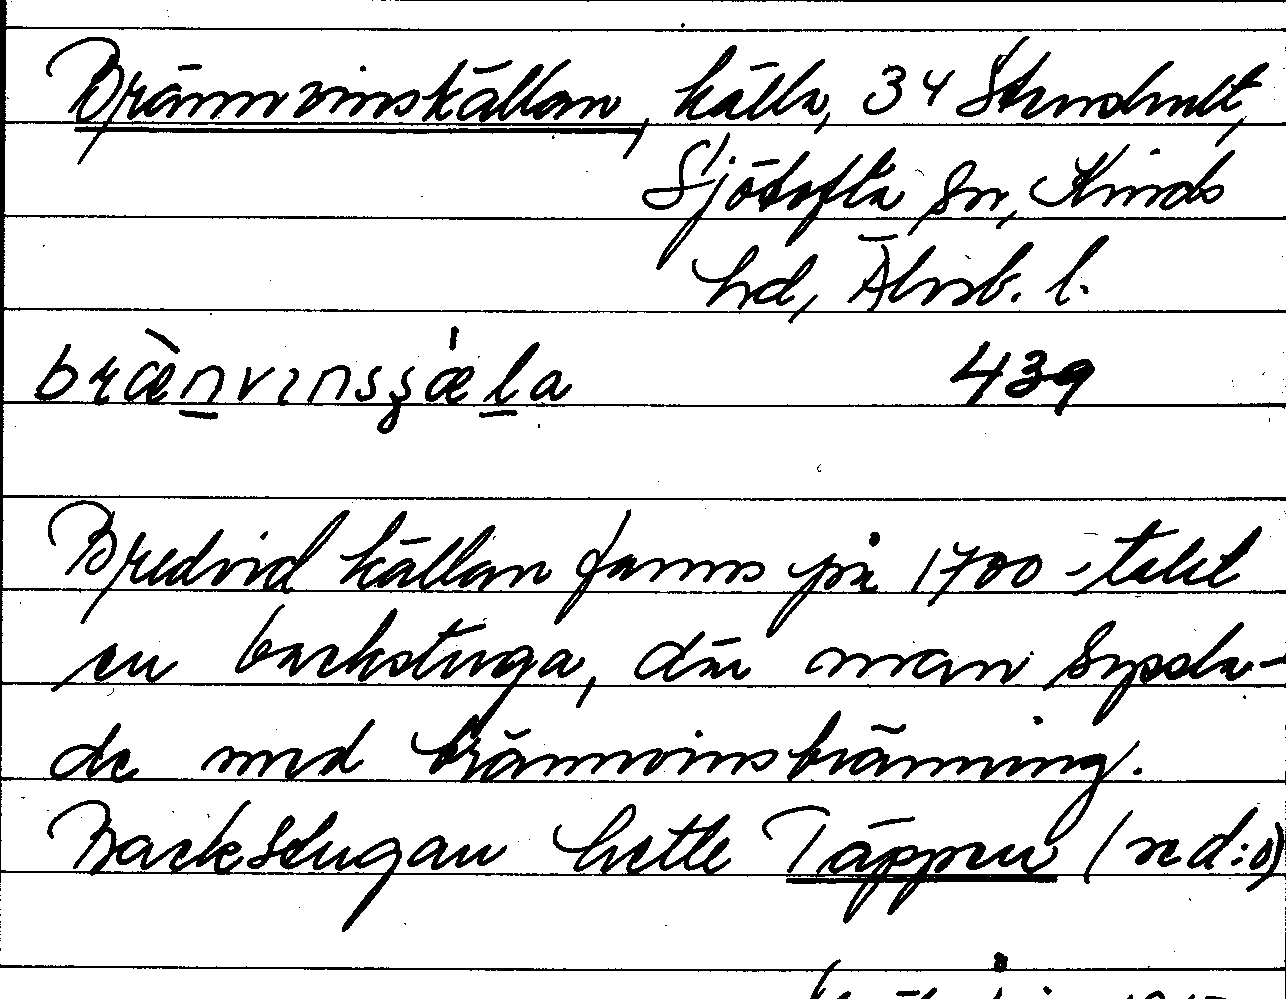 Brännvinskällan, källa, 34 Stendhult,
Sjötofta sn, Kinds
hd, Älvsb. l.
bræ̀n̲vınsʂæ̍l̲a 439
Bredvid källan fanns på 1700-talet
en backstuga, där man syssla-
de med brännvinsbränning.
Backstugan hette Täppen (se d:o)